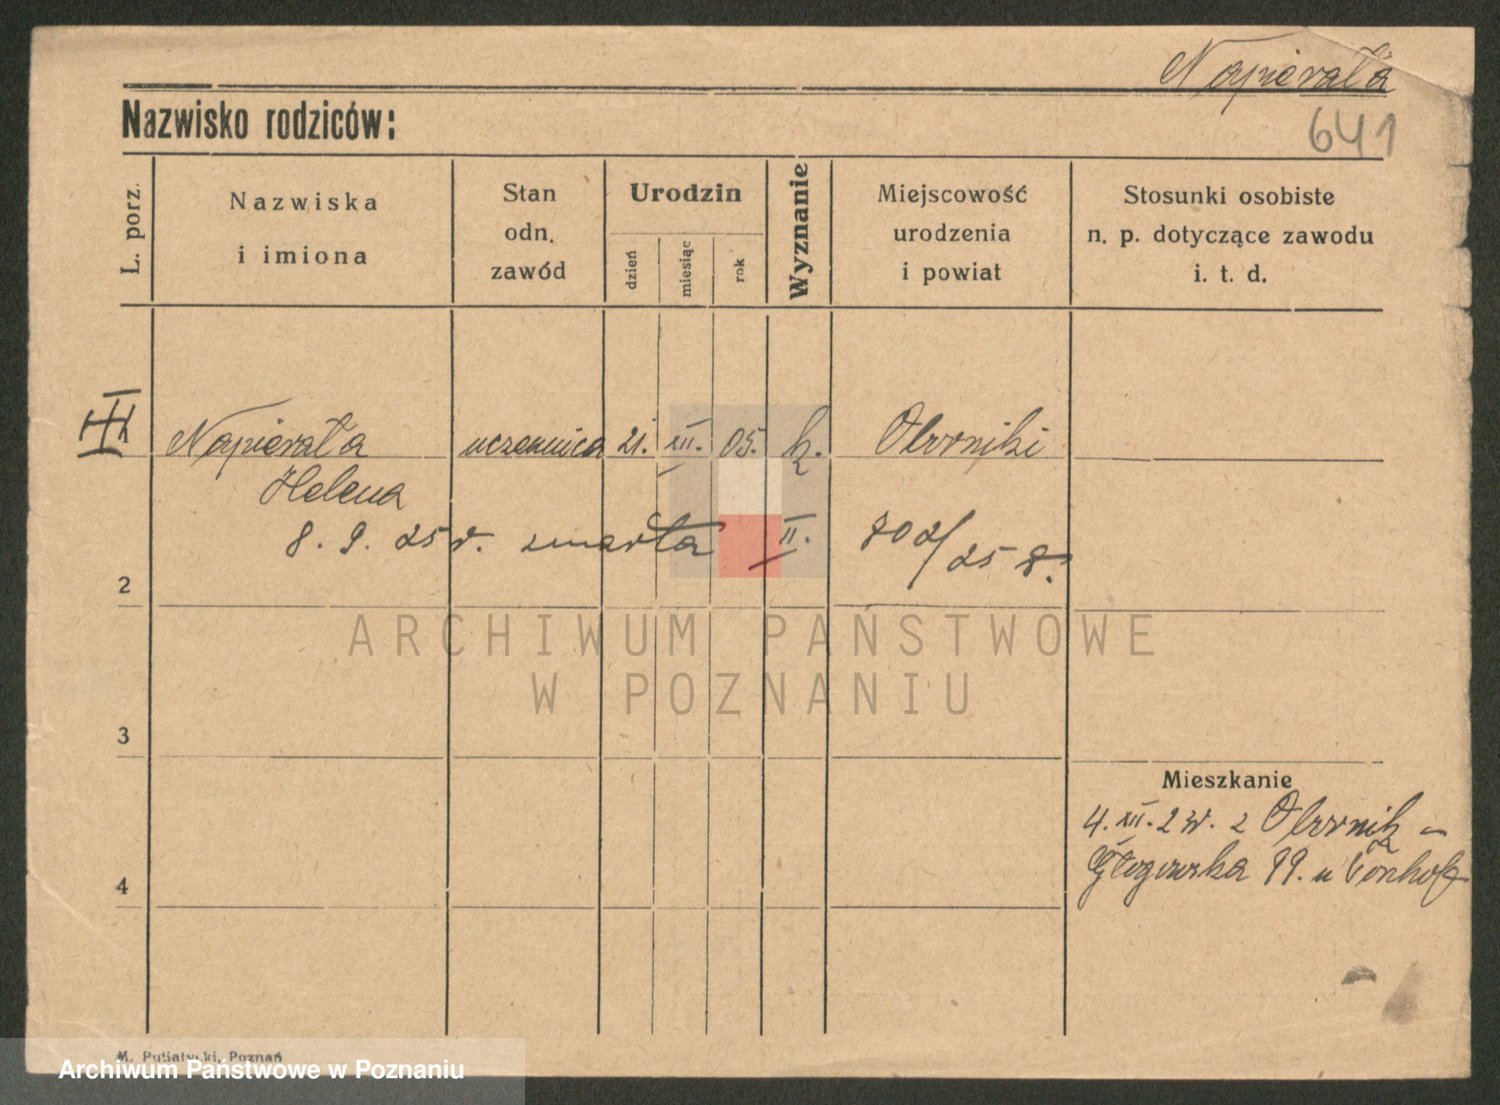 Napierała
641
Nazwisko rodziców:
L. porz.
Nazwiska
i imiona
Stan
odn.
zawód
Urodzin
dzień
miesiąc
rok
Wyznanie
Miejscowość
urodzenia
i powiat
Stosunki osobiste
n. p. dotyczące zawodu
i. t. d.
Napierała uczennica 21. XII. 05. k. Oborniki
Helena
8. 9. 25 r. zmarła II. 702/25 r.
2
ARCHIWUM PAŃSTWOWE
W POZNANIU
3
Mieszkanie
4. XII. 2 z Obornik –
Głogowska 99. u
4
M. Putiatycki, Poznań
Archiwum Państwowe w Poznaniu